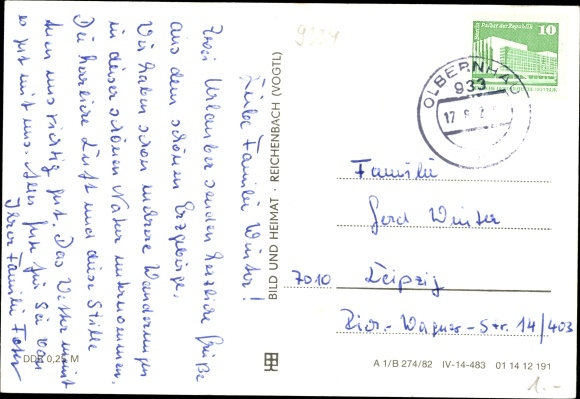 Liebe Familie Winter!
Zwei Urlauber senden herzliche Grüße
aus dem schönen Erzgebirge.
Wir haben schon mehrere Wanderungen
in dieser schönen Natur unternommen.
Die herrliche Luft und diese Stille
tun uns richtig gut. Das Wetter meint
es gut mit uns. Alles Gute für Sie von
Ihrer Familie
DDR 0,25 M
BILD UND HEIMAT · REICHENBACH (VOGTL)
9334
Berlin Palast der Republik
10
OLBERNHAU
933
17.8.
Familie
Gerd Winter
7010 Leipzig
Rich.-Wagner-Str. 14/403
A 1/B 274/82 IV-14-483 01 14 12 191
1.-